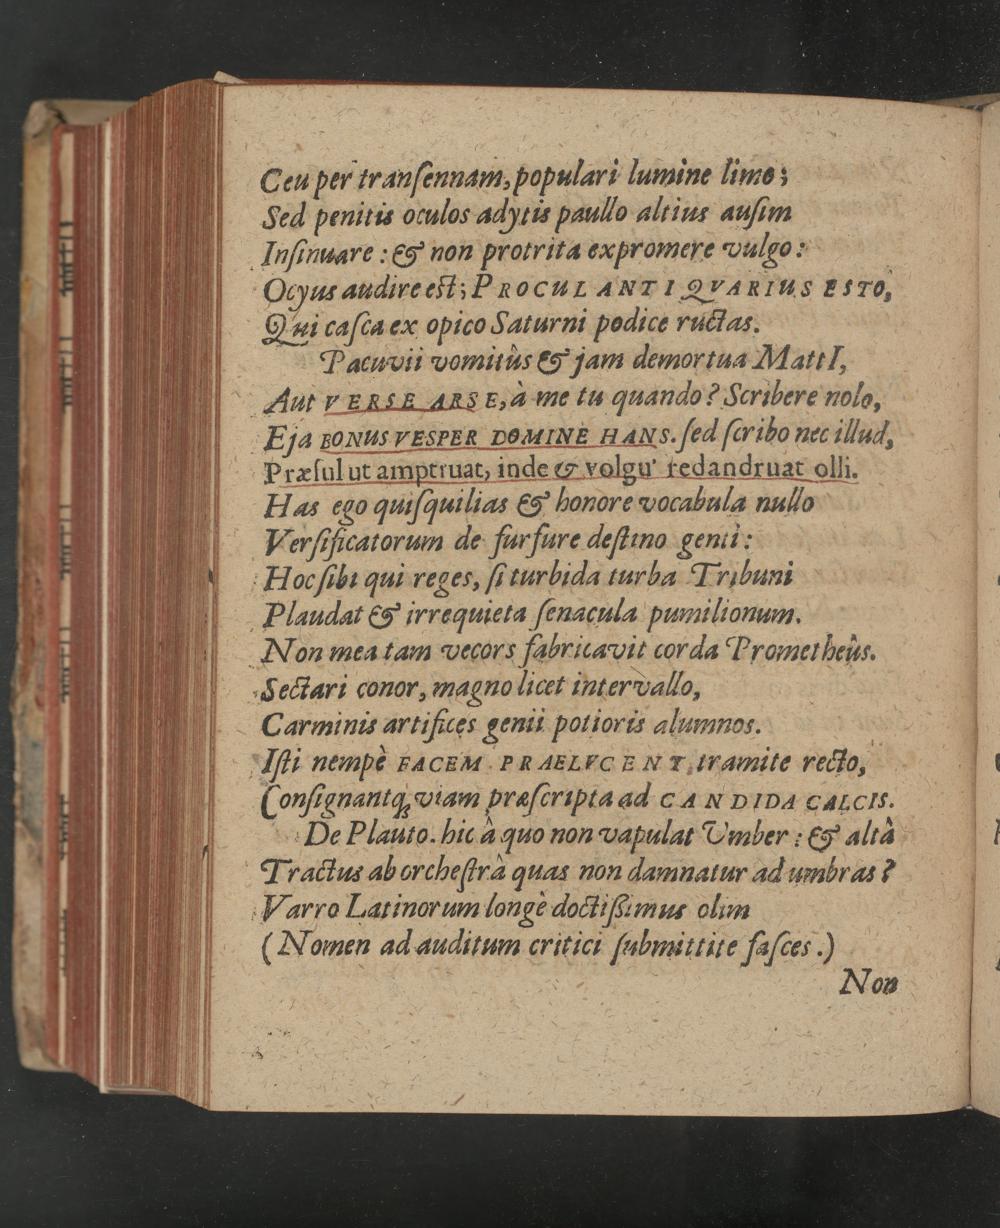 Ceu per tranſennam, populari lumine limo;
Sed penitis oculos adytis paullo altius auſim
Inſinuare: & non protrita expromere vulgo:
Ocyus audire eſt; PROCUL ANTIQVARIUS ESTO,
Qui caſca ex opico Saturni podice ructas.
Pacuvii vomitûs & jam demortua MattI,
Aut VERSE ARSE, à me tu quando? Scribere nolo,
Eja BONUS VESPER DOMINE HANS. ſed ſcribo nec illud,
Præſul ut amptruat, inde & volgu' redandruat olli.
Has ego quiſquilias & honore vocabula nullo
Verſificatorum de furfure deſtino genti:
Hoc ſibi qui reges, ſi turbida turba Tribuni
Plaudat & irrequieta ſenacula pumilionum.
Non mea tam vecors fabricavit corda Prometheûs.
Sectari conor, magno licet intervallo,
Carminis artifices genii potioris alumnos.
Iſti nempè FACEM PRAELVCENT, tramite recto,
Conſignantq́; viam præſcripta ad CANDIDA CALCIS.
De Plauto. hic â quo non vapulat Umber: & altâ
Tractus ab orcheſtrà quas non damnatur ad umbras?
Varro Latinorum longè doctiſſimus olim
(Nomen ad auditum critici ſubmittite faſces.)
Non